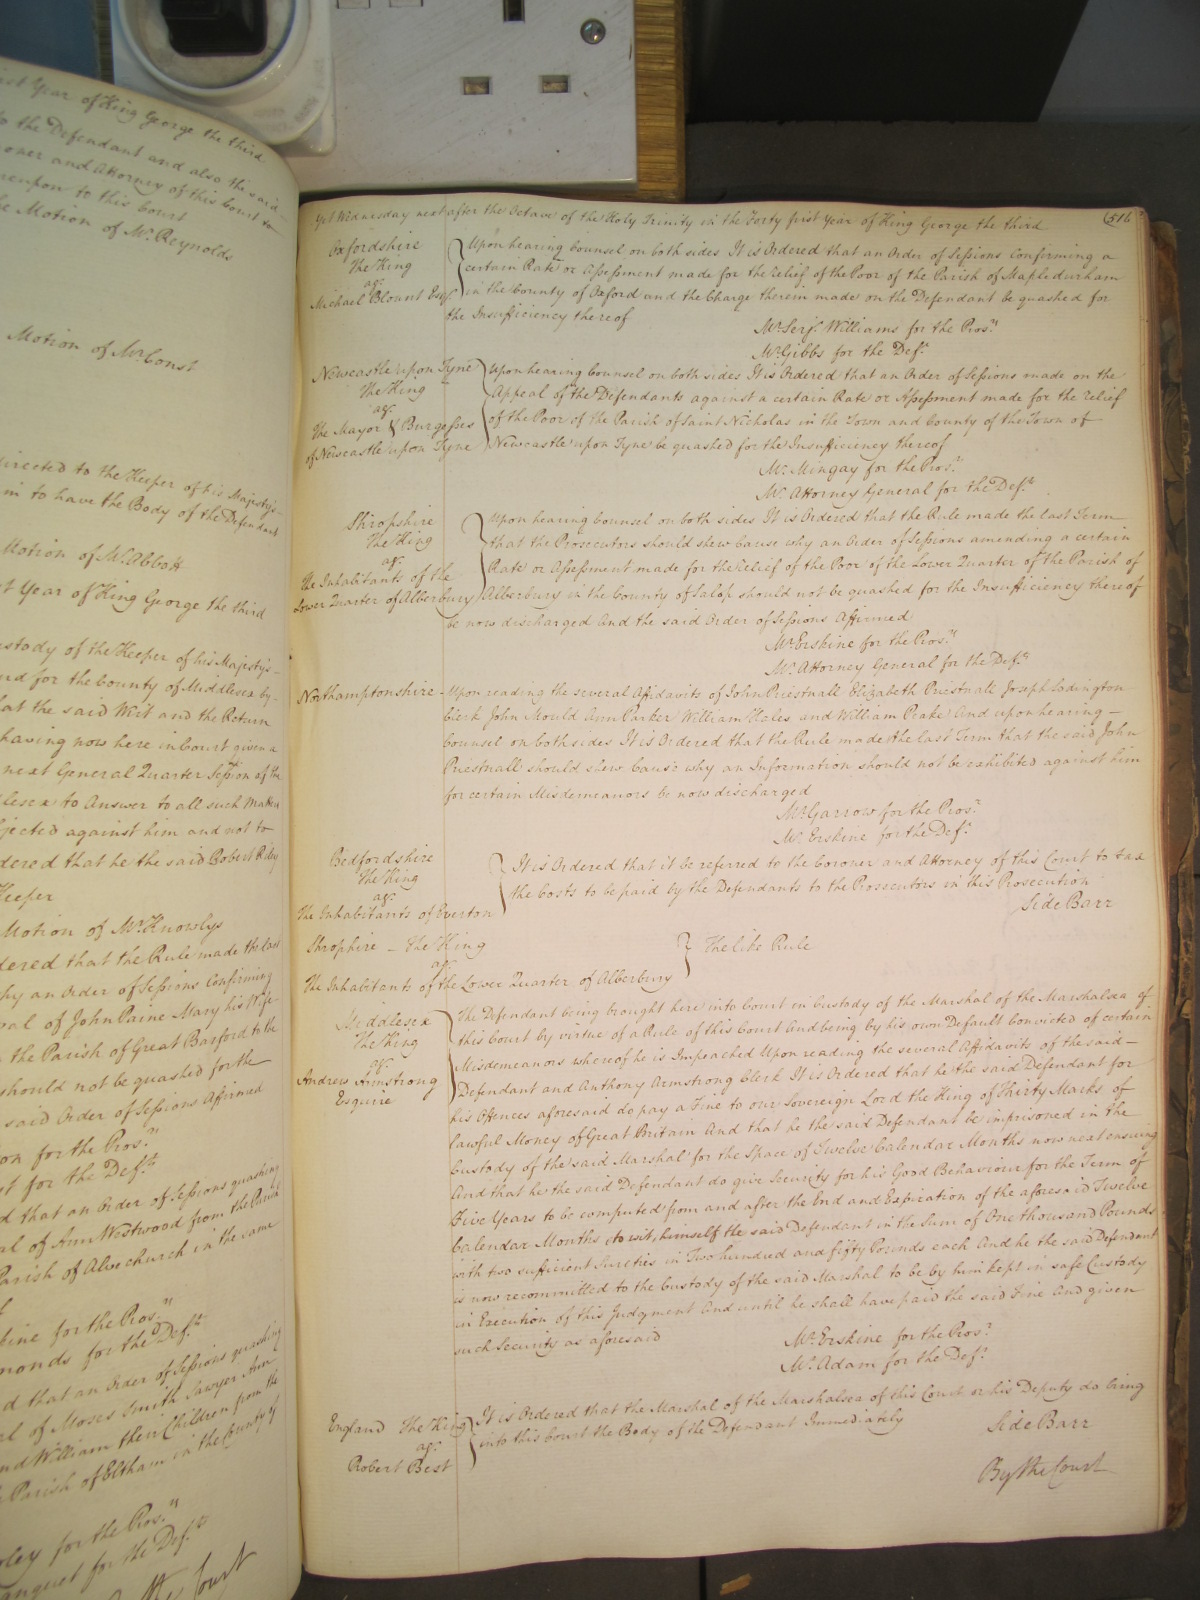 irst Year of King George the third
to the Defendant and also the said
oner and Attorney of this Court to
reupon to this Court
he Motion of Mr. Reynolds
Motion of Mr. Const
directed to the Keeper of his Majesty's
m to have the Body of the Defendant
Motion of Mr. Abbott
t Year of King George the third
ustody of the Keeper of his Majesty's
nd for the County of Middlesex by
hat the said Writ and the Return
having now here in Court given a
next General Quarter Session of the
dlesex to Answer to all such Matters
jected against him and not to
dered that he the said Robert Riley
Keeper
Motion of Mr. Knowlys
dered that the Rule made the last
hy an Order of Sessions Confirming
val of John Paine Mary his Wife
the Parish of Great Barford to the
should not be quashed for the
said Order of Sessions Affirmed
on for the Pros.rs
t for the Def.ts
d that an Order of Sessions quashing
al of Ann Westwood from the Parish
Parish of Alvechurch in the same
kine for the Pros.rs
monds for the Def.ts
d that an Order of Sessions quashing
al of Moses Smith Sawyer Ann
nd William their Children from the
Parish of Eltham in the County of
ley for the Pros.rs
anquet for the Def.ts
the Court
Yet Wednesday next after the Octave of the Holy Trinity in the Forty first Year of King George the third
516
Oxfordshire
The King
ag.t
Michael Blount Esq.r
Upon hearing Counsel on both sides It is Ordered that an Order of Sessions Confirming a
certain Rate or Assessment made for the relief of the Poor of the Parish of Mapledurham
in the County of Oxford and the Charge therein made on the Defendant be quashed for
the Insufficiency thereof
Mr. Serj.t Williams for the Pros.rs
Mr. Gibbs for the Def.t
Newcastle upon Tyne
The King
ag.t
The Mayor & Burgesses
of Newcastle upon Tyne
Upon hearing Counsel on both sides It is Ordered that an Order of Sessions made on the
Appeal of the Defendants against a certain Rate or Assessment made for the relief
of the Poor of the Parish of Saint Nicholas in the Town and County of the Town of
Newcastle upon Tyne be quashed for the Insufficiency thereof
Mr. Mingay for the Pros.rs
Mr. Attorney General for the Def.ts
Shropshire
The King
ag.t
The Inhabitants of the
Lower Quarter of Alberbury
Upon hearing Counsel on both sides It is Ordered that the Rule made the last Term
that the Prosecutors should shew Cause why an Order of Sessions amending a certain
Rate or Assessment made for the Relief of the Poor of the Lower Quarter of the Parish of
Alberbury in the County of Salop should not be quashed for the Insufficiency thereof
be now discharged And the said Order of Sessions Affirmed
Mr. Erskine for the Pros.rs
Mr. Attorney General for the Def.ts
Northamptonshire - Upon reading the several Affidavits of John Priestnall Elizabeth Priestnall Joseph Lodington
Clerk John Mould Ann Parker William Hales and William Peake And upon hearing
Counsel on both sides It is Ordered that the Rule made the last Term that the said John
Priestnall should shew Cause why an Information should not be exhibited against him
for certain Misdemeanors be now discharged
Mr. Garrow for the Pros.r
Mr. Erskine for the Def.t
Bedfordshire
The King
ag.t
The Inhabitants of Everton
It is Ordered that it be referred to the Coroner and Attorney of this Court to tax
the Costs to be paid by the Defendants to the Prosecutors in this Prosecution
Side Barr
Shrophire - The King
ag.t
The Inhabitants of the Lower Quarter of Alberbury
The like Rule
Middlesex
The King
ag.t
Andrew Armstrong
Esquire
The Defendant being brought here into Court in Custody of the Marshal of the Marshalsea of
this Court by virtue of a Rule of this Court And being by his own Default Convicted of certain
Misdemeanors whereof he is Impeached Upon reading the several Affidavits of the said
Defendant and Anthony Armstrong Clerk It is Ordered that he the said Defendant for
his Offences aforesaid do pay a Fine to our Sovereign Lord the King of Thirty Marks of
lawful Money of Great Britain And that he the said Defendant be imprisoned in the
Custody of the said Marshal for the Space of Twelve Calendar Months now next ensuing
And that he the said Defendant do give Security for his Good Behaviour for the Term of
Five Years to be computed from and after the End and Expiration of the aforesaid Twelve
Calendar Months to wit, himself the said Defendant in the Sum of One thousand Pounds
with two sufficient Sureties in Two hundred and fifty Pounds each And he the said Defendant
is now recommitted to the Custody of the said Marshal to be by him kept in safe Custody
in Execution of this Judgment And until he shall have paid the said Fine And given
such Security as aforesaid
Mr. Erskine for the Pros.r
Mr. Adam for the Def.t
England The King
ag.t
Robert Best
It is Ordered that the Marshal of the Marshalsea of this Court or his Deputy do bring
into this Court the Body of the Defendant Immediately
Side Barr
By the Court